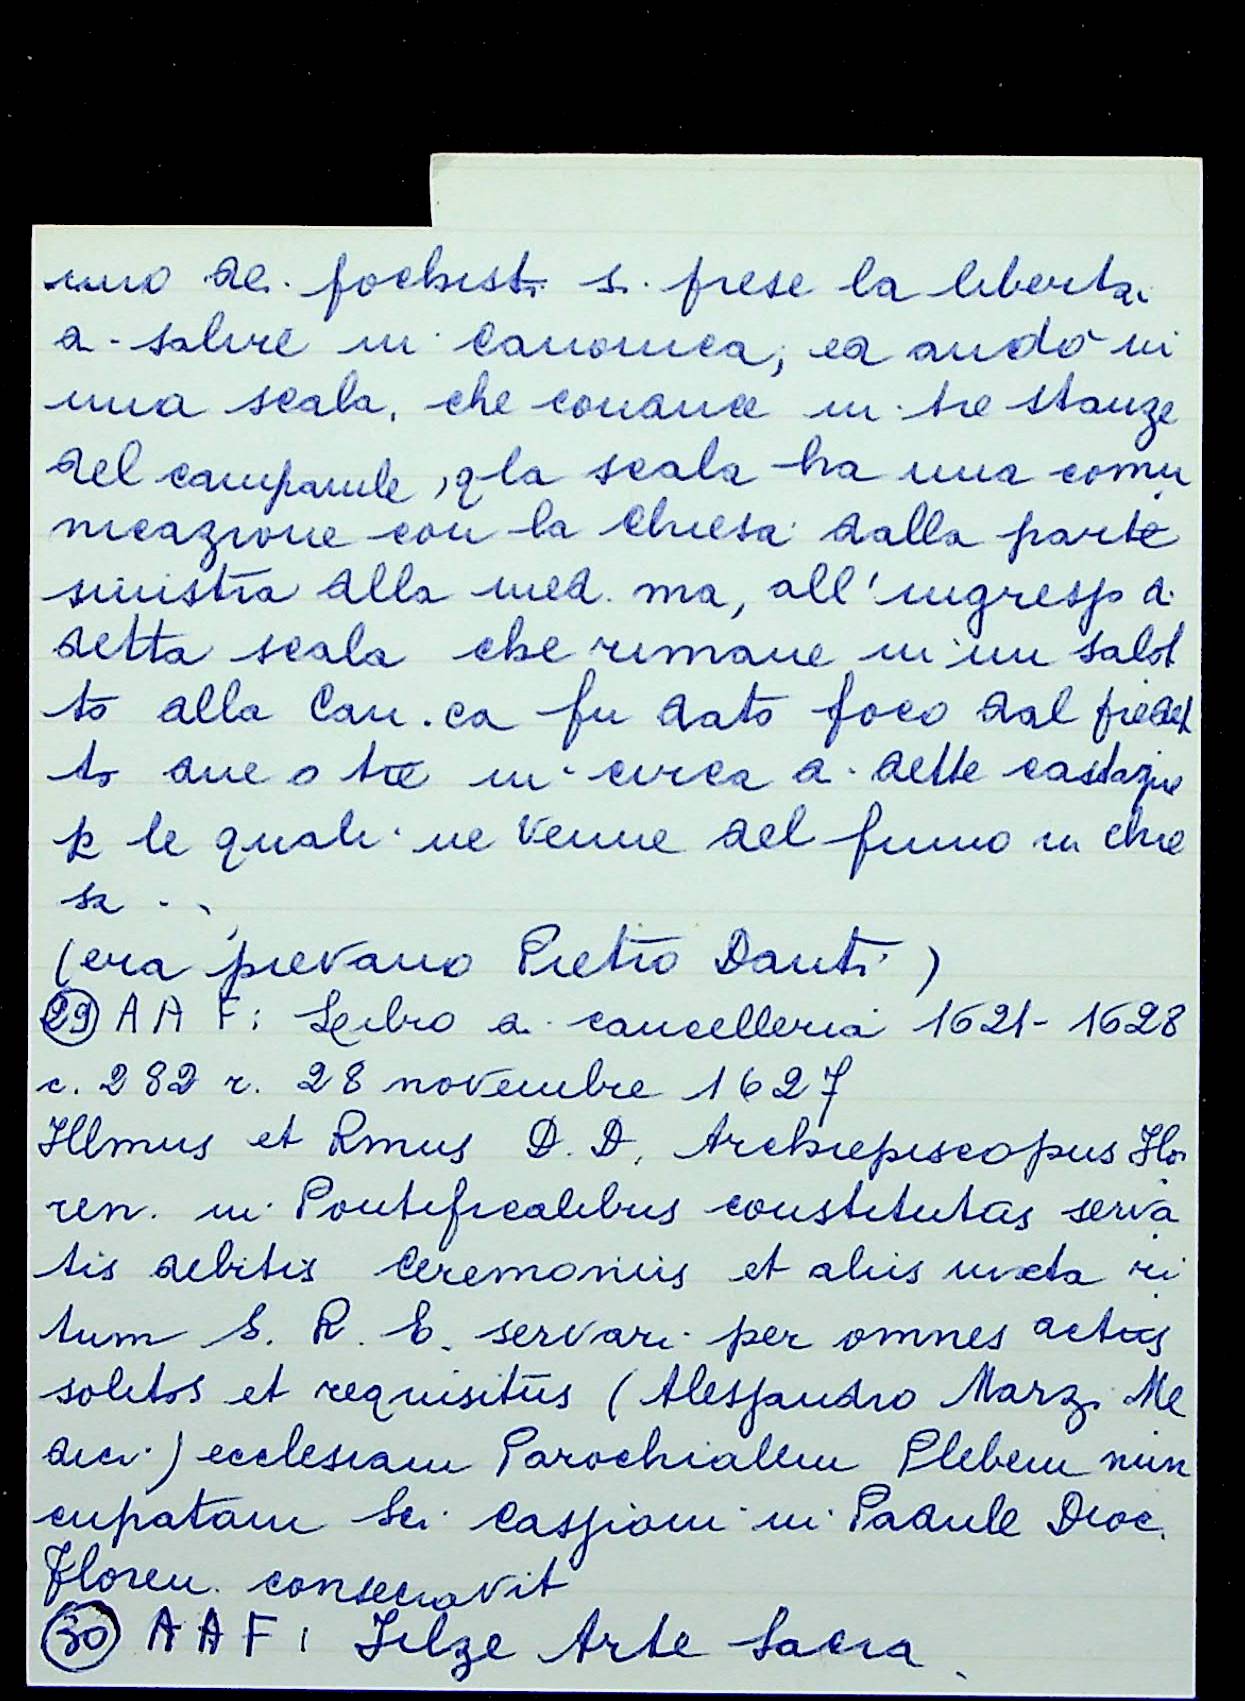 uno dei fochisti si prese la libertà
di salire in Canonica, ed andò in
una scala, che conduce in tre stanze
del campanile, qla scala ha una comu
nicazione con la Chiesa dalla parte
sinistra della med.ma, all'ingresso di
detta scala che rimane in un salot
to alla Can.ca fu dato foco dal predet
to due o tre in circa di dette
p le quali ne venne del fumo in chie
sa ...
(era pievano Pietro Danti)
29 A A F: Libro di cancelleria 1621-1628
c. 282 r. 28 novembre 1627
Illmus et Rmus D. D. Archiepiscopus Flo
ren. in Pontificalibus constitutus serva
tis debitis ceremoniis et aliis iuxta ri
tum S. R. E. servari per omnes actus
solitos et requisitus (Alessandro Marzi Me
dici) ecclesiam Parochialem Plebem nun
cupatam Sci Cassiani in Padule Dioc.
Floren. consecravit
30 A A F: Filze Arte Sacra